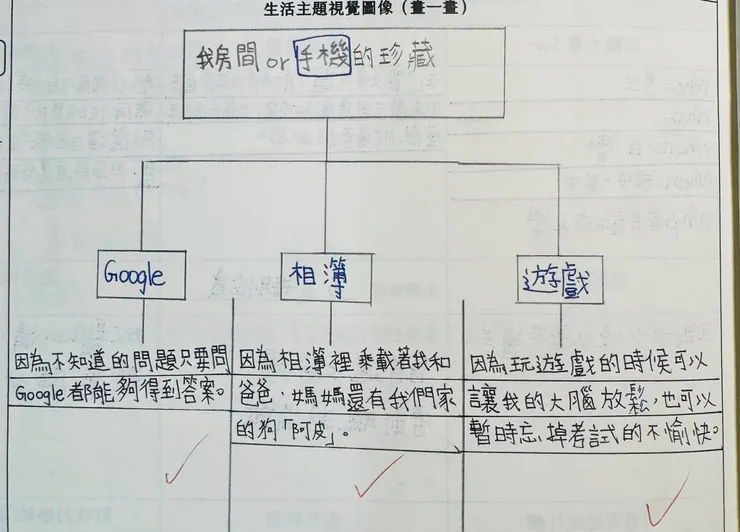 生活主題視覺圖像（畫一畫）
我房間or手機的珍藏
Google
相簿
遊戲
因為不知道的問題只要問
Google都能夠得到答案。
因為相簿裡乘載著我和
爸爸、媽媽還有我們家
的狗「阿皮」。
因為玩遊戲的時候可以
讓我的大腦放鬆,也可以
暫時忘掉考試的不愉快。